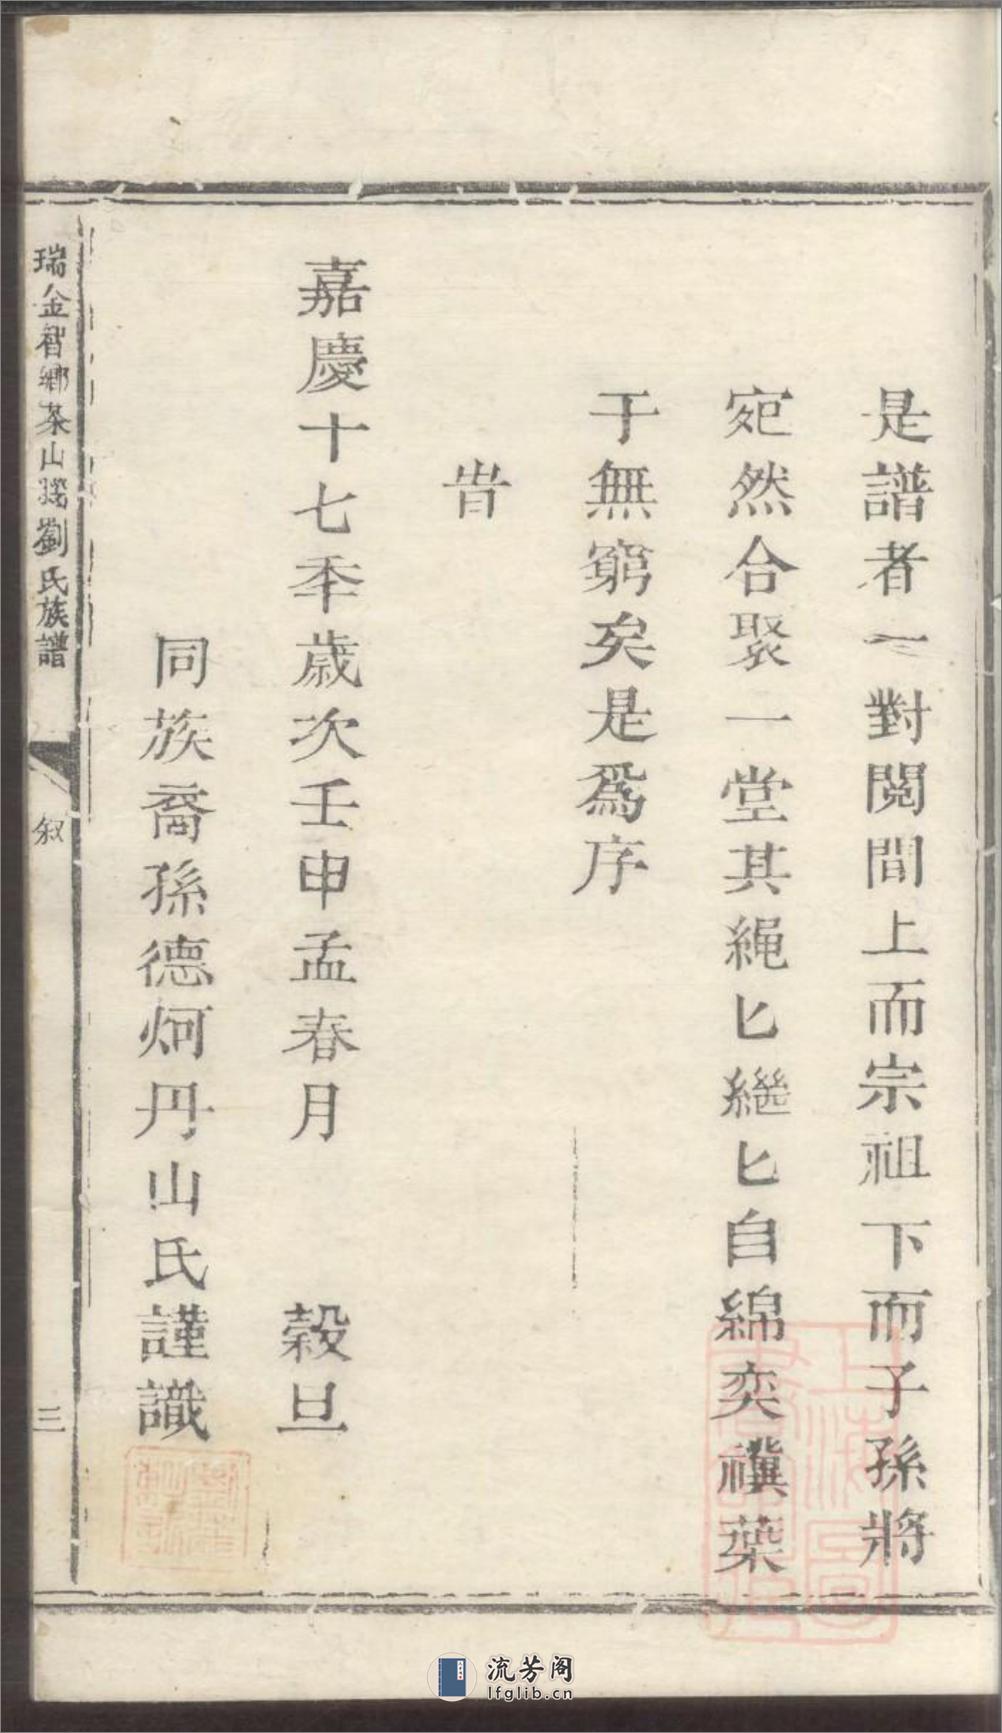 是譜者一對閱間上而宗祖下而子孫將
宛然合聚一堂其繩匕繼匕自綿奕禩葉
于無窮矣是爲序
旹
嘉慶十七秊歲次壬申孟春月 穀旦
同族裔孫德炯丹山氏謹識
瑞金智鄉茶山劉氏族譜
叙
三
流芳阁
lfglib.cn